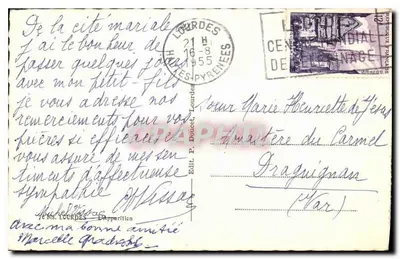 De la cité mariale
j'ai le bonheur de
passer quelques jours
avec mon petit-fils
je vous adresse nos
remerciements pour vos
prières si efficaces et
vous assure de mes sen
timents d'affectueuse
sympathie
Avec ma bonne amitié
Marcelle
LOURDES
21 H
16-8
1955
HTES-PYRENEES
Edit. P. Doucet, Lourdes
LOURDES L'Apparition
Sœur Marie Henriette de Jésus
Monastère du Carmel
Draguignan
(Var)